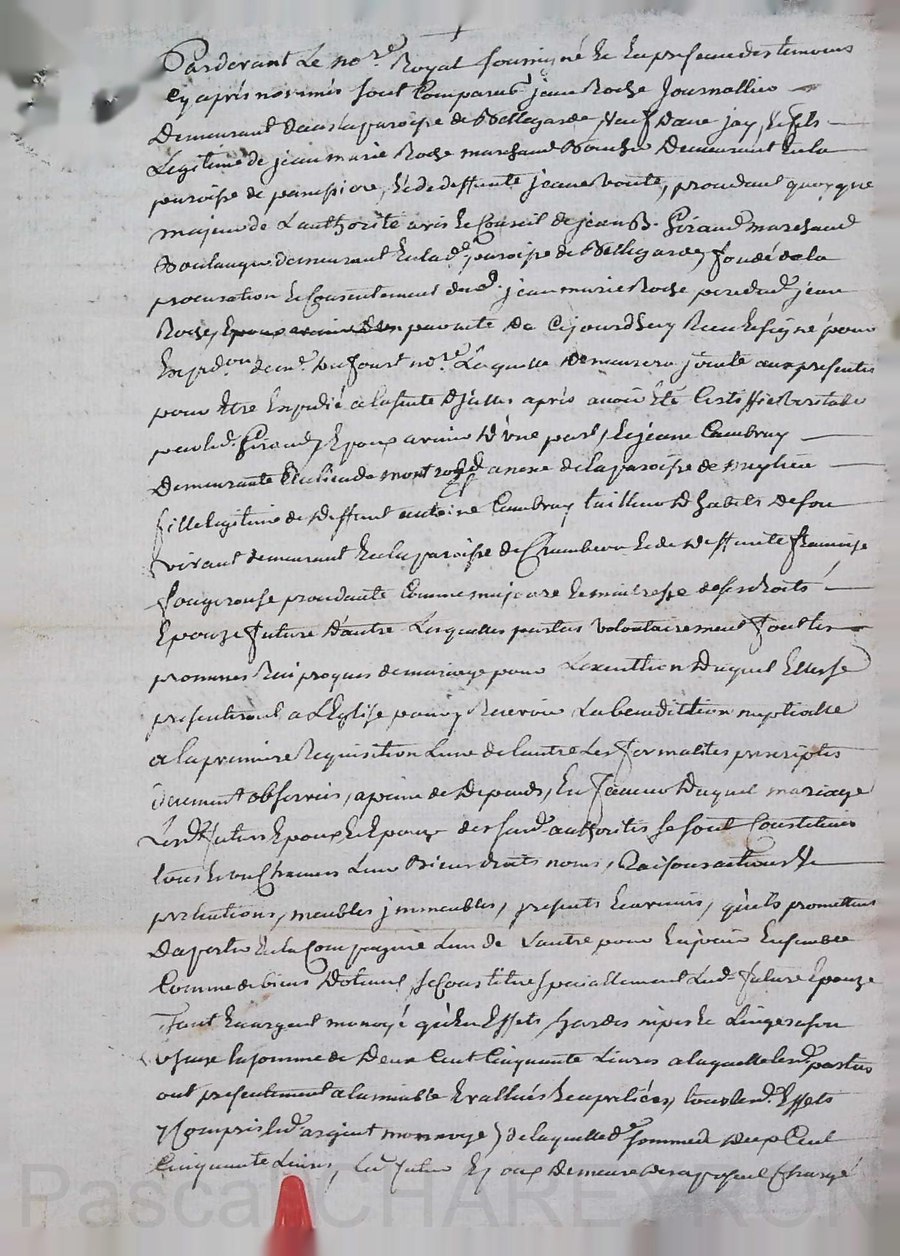 Pardevant Le no.re Royal soussigné Et En presence des temoins
Cy après nommés sont Comparus jean Roche Journallier
Demeurant dans la paroisse de Bellegarde, veuf d'ane jay, Et fils
Legitime de jean marie Roche marchand Boucher Demeurant En la
paroisse de , Et de deffunte jeane Voute, procedant quoyque
majeur de Lauthorité avis Et Conseil de jean B. Giraud marchand
Boulanger demeurant En lad. paroisse de Bellegarde, fondé de la
procuration Et Consentement dud. jean marie Roche pere dud. jean
Roche, par acte de Cejourdhuy Recu Et signé pour
Expedon de me. Dufourt no.re Laquelle demeurera jointe aux presentes
pour Etre Expedié a la suitte D'jcelles après avoir Eté Certiffié Veritable
par led. Giraud, Epoux avenir D'une part, Et jeane Cambray
Demeurante Et au lieu de montrond anexe de la paroisse de meylieu
fille legitime de deffunt antoine Cambray tailleur D'habits de son
vivant demeurant En la paroisse de Chambeon Et de deffunte francoise
fougerouse procedante Comme majeure Et maitresse de ses droits
Epouze future D'autre Lesquelles parties volontairement se sont
promises Reciproques de mariage pour Lexecution Duquel Elles se
presenteront a L'Eglise pour y Recevoir La benediction nuptialle
a la premiere Requisition Lune de lautre Les formalites prescriptes
duement observées, a peine de Depends, En faveur Duquel mariage
Lesd. futurs Epoux Et Epouze des susd. authorités se sont Constitués
tous Et un Chacuns Leurs Biens droits noms, Raisons actions Et
pretentions, meubles jmmeubles, presents Et avenirs, qu'ils promettent
D'aporter En la Compagnie Lun de Lautre pour En jouir Ensemble
Comme de biens Dotaux, se Constitue specialement Lad. future Epouze
Tant En argent monoyé qu'En Effets, hardes nipes Et Linges a son
usage la somme de Deux Cent Cinquante Livres a laquelle lesd. parties
ont presentement a lamiable Evallués Et apreciés, tous lesd. Effets
y Compris led. argent monnoye, de laquelle d. somme de deux Cent
Cinquante Livres, Led. futur Epoux Demeure des a present Chargé
Pascal CHAREYRON